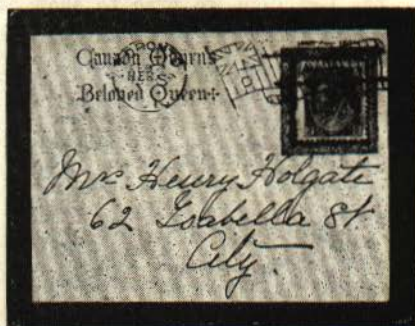 Canada Mourns
Beloved Queen
Mrs Henry Holgate
62 Isabella St.
City.